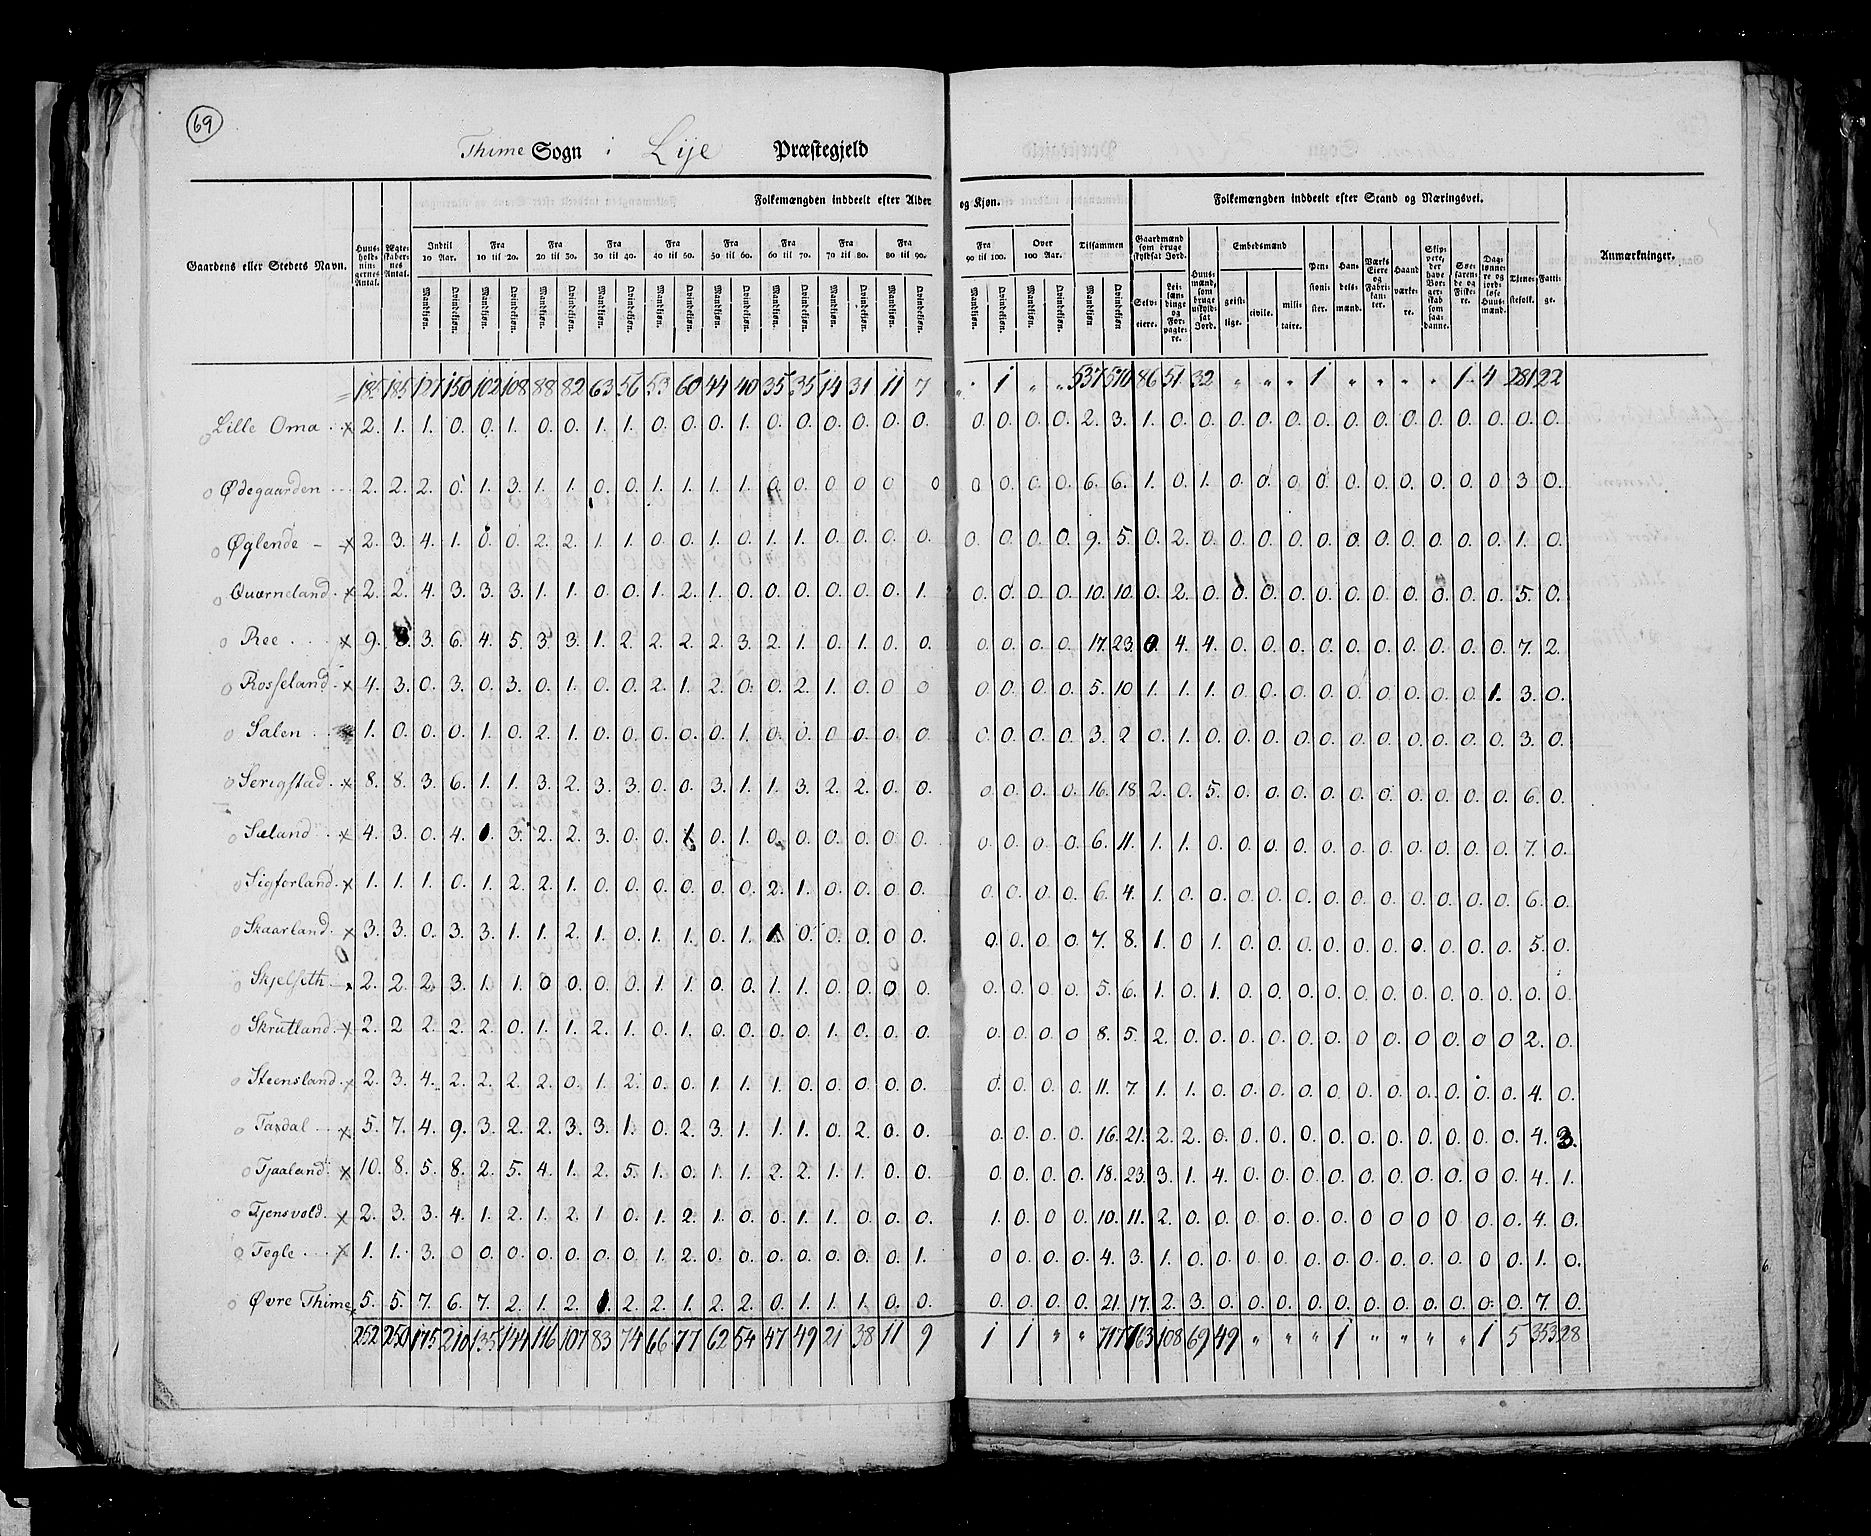 69
Thime Sogn i Lije Præstegjeld
Gaardens eller Stedets Navn. Huusholdningernes Antal. Ægteskabernes Antal. Folkemængden inddeelt efter Alder og Kjøn. Folkemængden inddeelt efter Stand og Næringsvei. Anmærkninger.
Indtil 10 Aar. Fra 10 til 20. Fra 20 til 30. Fra 30 til 40. Fra 40 til 50. Fra 50 til 60. Fra 60 til 70. Fra 70 til 80. Fra 80 til 90. Fra 90 til 100. Over 100 Aar. Tilsammen Gaardmænd som bruge skyldsat Jord. Huusmænd, som bruge uskyldsat Jord. Embedsmænd Pensionister. Handelsmænd. Værks Eiere og Fabrikanter. Haandværkere. Skippere, der have Borgerskab som saadanne. Søefarende og Fiskere. Daglønnere og jordløse Huusmænd. Tjenestefolk. Fattige.
Mandkjøn. Qvindekjøn. Mandkjøn. Qvindekjøn. Mandkjøn. Qvindekjøn. Mandkjøn. Qvindekjøn. Mandkjøn. Qvindekjøn. Mandkjøn. Qvindekjøn. Mandkjøn. Qvindekjøn. Mandkjøn. Qvindekjøn. Mandkjøn. Qvindekjøn. Mandkjøn. Qvindekjøn. Mandkjøn. Qvindekjøn. Mandkjøn Qvindekjøn Selveiere. Leilændinge og Forpagtere. geistlige. civile. militaire.
185 185 127 150 102 108 88 82 63 56 53 60 44 40 35 35 14 31 11 7 " 1 " " 537 570 86 51 32 " " " 1 " " " " 1 4 281 22
Lille Oma x 2. 1. 1. 0. 0. 1. 0. 0. 1. 1. 0. 0. 0. 1. 0. 0. 0. 0. 0. 0. 0. 0. 0. 0. 2. 3. 1. 0. 0. 0. 0. 0. 0. 0. 0. 0. 0. 0. 0. 0. 0.
Ødegaarden 2. 2. 2. 0. 1. 3. 1. 1. 0. 0. 1. 1. 1. 1. 0. 0. 0. 0. 0 0 0 0. 0. 0. 6. 6. 1. 0. 1. 0. 0. 0. 0. 0. 0. 0. 0. 0. 0 3 0.
Øglende x 2. 3. 4. 1. 0. 0. 2. 2. 1. 1. 0. 0. 1. 0. 1. 1. 0. 0. 0. 0. 0. 0. 0. 0. 9. 5. 0. 2. 0. 0. 0. 0. 0. 0. 0. 0. 0. 0. 0. 1. 0.
Quærneland x 2. 2. 4. 3. 3. 3. 1. 1. 0. 0. 1. 2. 1. 0. 0. 0. 0. 0. 0. 1. 0. 0. 0. 0. 10. 10. 0. 2. 0. 0. 0. 0. 0. 0. 0. 0. 0. 0. 0. 5. 0.
Ree x 9. 8. 3. 6. 4. 5. 3. 3. 1. 2. 2. 2. 2. 3. 2. 1. 0. 1. 0. 0. 0. 0. 0. 0. 17. 23. 0. 4. 4. 0. 0. 0. 0. 0. 0. 0. 0. 0. 0. 7. 2.
Rosseland x 4. 3. 0. 3. 0. 3. 0. 1. 0. 0. 2. 1. 2. 0. 0. 2. 1. 0. 0 0 0 0. 0. 0. 5. 10 1. 1. 1. 0. 0. 0. 0. 0. 0. 0. 0. 0 1. 3. 0.
Salen 1. 0. 0. 0. 1. 0. 2. 1. 0. 0. 0. 0. 0. 1. 0. 0. 0 0. 0. 0. 0. 0. 0. 0. 3. 2 0. 1. 0. 0. 0. 0. 0. 0. 0. 0. 0. 0. 0. 3. 0.
Serigstad x 8. 8. 3. 6. 1. 1. 3. 2. 3. 3. 0. 0. 3. 1. 1. 3. 2. 2. 0. 0. 0. 0. 0. 0. 16. 18 2. 0. 5. 0. 0. 0. 0. 0. 0. 0. 0. 0. 0. 6. 0.
Sæland x 4. 3. 0. 4. 0. 3. 2. 2. 3. 0. 0. 1. 0. 1. 0. 0. 0. 0. 0. 0. 0. 0. 0. 0. 6. 11. 1. 1. 0. 0. 0. 0. 0. 0. 0. 0. 0. 0. 0. 7. 0.
Sigforland x 1. 1. 1. 0. 1. 2. 2. 1. 0. 0. 0. 0. 0. 0. 2. 1. 0. 0. 0. 0. 0. 0. 0. 0. 6. 4. 1. 0. 0. 0. 0. 0. 0. 0. 0. 0. 0. 0. 0. 6. 0.
Skaarland x 3. 3. 0. 3. 3. 1. 1. 2. 1. 0. 1. 1. 0. 1. 1. 0. 0. 0. 0. 0. 0. 0. 0. 0 7. 8. 1. 0 1. 0. 0. 0. 0. 0. 0. 0. 0. 0. 0. 5. 0.
Skjelseth x 2. 2. 2. 3. 1. 1. 0 0. 0. 0. 1. 1. 0. 0. 1. 1. 0. 0. 0 0. 0. 0. 0. 0. 5. 6. 1. 0. 1. 0. 0. 0. 0. 0. 0. 0. 0. 0. 0. 0. 0.
Skrutland x 2. 2 2. 2. 2. 0. 1. 1. 2. 1. 0. 1. 0. 0. 0. 0. 1. 0. 0. 0. 0. 0. 0. 0 8. 5. 2. 0. 0. 0. 0. 0. 0. 0. 0. 0. 0. 0. 0 2. 0.
Steensland x 2. 3. 4. 2. 2. 2. 2. 0. 1. 2. 0. 0. 1. 1. 1. 0. 0. 0. 0. 0. 0. 0. 0. 0. 11. 7. 1. 1. 0. 0. 0. 0. 0. 0. 0. 0. 0. 0. 0. 4. 0.
Taxdal x 5. 7. 4. 9. 3. 2. 2. 3. 3. 1. 0. 2. 3. 1. 1. 1. 0. 2. 0. 0. 0. 0. 0. 0. 16. 21. 2. 2. 0. 0. 0. 0. 0. 0. 0. 0. 0. 0. 0. 4. 3.
Tjaaland x 10. 8. 5. 8. 2. 5. 4. 1. 2. 5. 1. 0. 1. 1. 2. 2. 1. 1. 0. 0. 0. 0. 0. 0. 18. 23. 3. 1. 4. 0. 0. 0. 0. 0. 0. 0. 0. 0. 0. 4. 1.
Tjensvold x 2. 3. 3. 4. 1. 2. 1. 2. 1 0. 1. 2. 1. 0. 0. 1. 1. 0. 0. 0. 1. 0. 0 0. 10. 11. 2. 0. 0. 0. 0. 0. 0. 0. 0. 0. 0 0. 0. 4. 0.
Tegle x 1. 1. 3. 0 0. 0. 0. 0. 0. 0. 1. 2. 0. 0. 0. 0. 0. 0. 0. 1. 0. 0. 0. 0. 4. 3. 1. 0. 0. 0. 0. 0. 0. 0. 0. 0. 0. 0. 0. 1. 0.
Øvre Thime x 5. 5. 7. 6. 7. 2. 1. 2. 1. 2. 2. 1. 2. 2. 0. 1. 1. 1. 0. 0. 0. 0. 0. 0. 21. 17. 2. 3. 0. 0. 0. 0. 0. 0. 0. 0. 0. 0. 0. 7. 0.
252 250 175 210 135 144 116 107 83 74 66 77 62 54 47 49 21 38 11 9 1 1 " " 717 763 108 69 49 " " " 1 " " " " 1 5 353 28